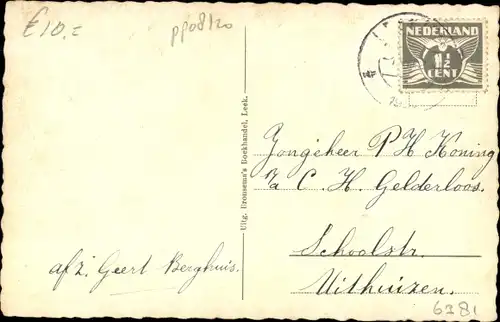 £10.=
pp08120
NEDERLAND
1½
CENT
Uitg. Bronsema's Boekhandel, Leek.
Jongeheer P H Koning
p/a C. H. Gelderloos.
Schoolstr.
Uithuizen.
afz. Geert Berghuis.
6281